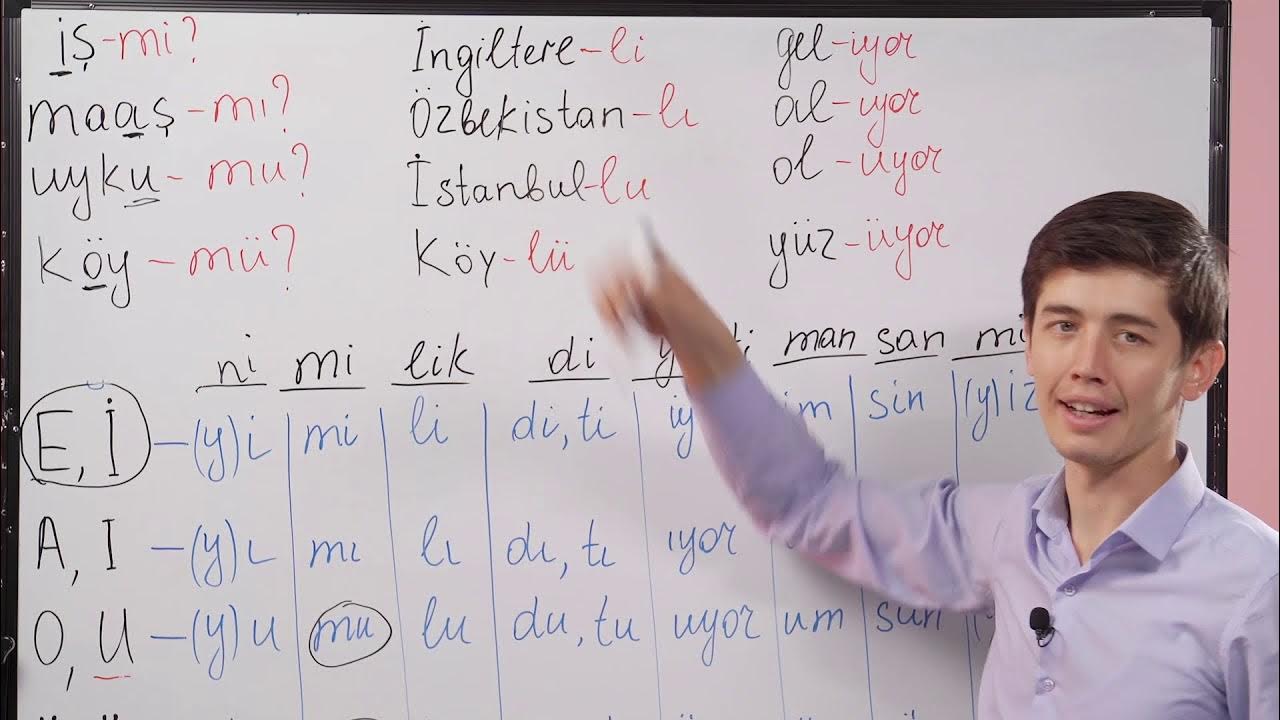 iş-mi? İngiltere-li gel-iyor
maaş-mı? Özbekistan-lı al-ıyor
uyku-mu? İstanbul-lu ol-uyor
köy-mü? Köy-lü yüz-üyor
ni mi lik di man san
E, İ -(y)i mi li di, ti im sin (y)iz
A, I -(y)ı mı lı dı, tı ıyor
O, U -(y)u mu lu du, tu uyor um sun